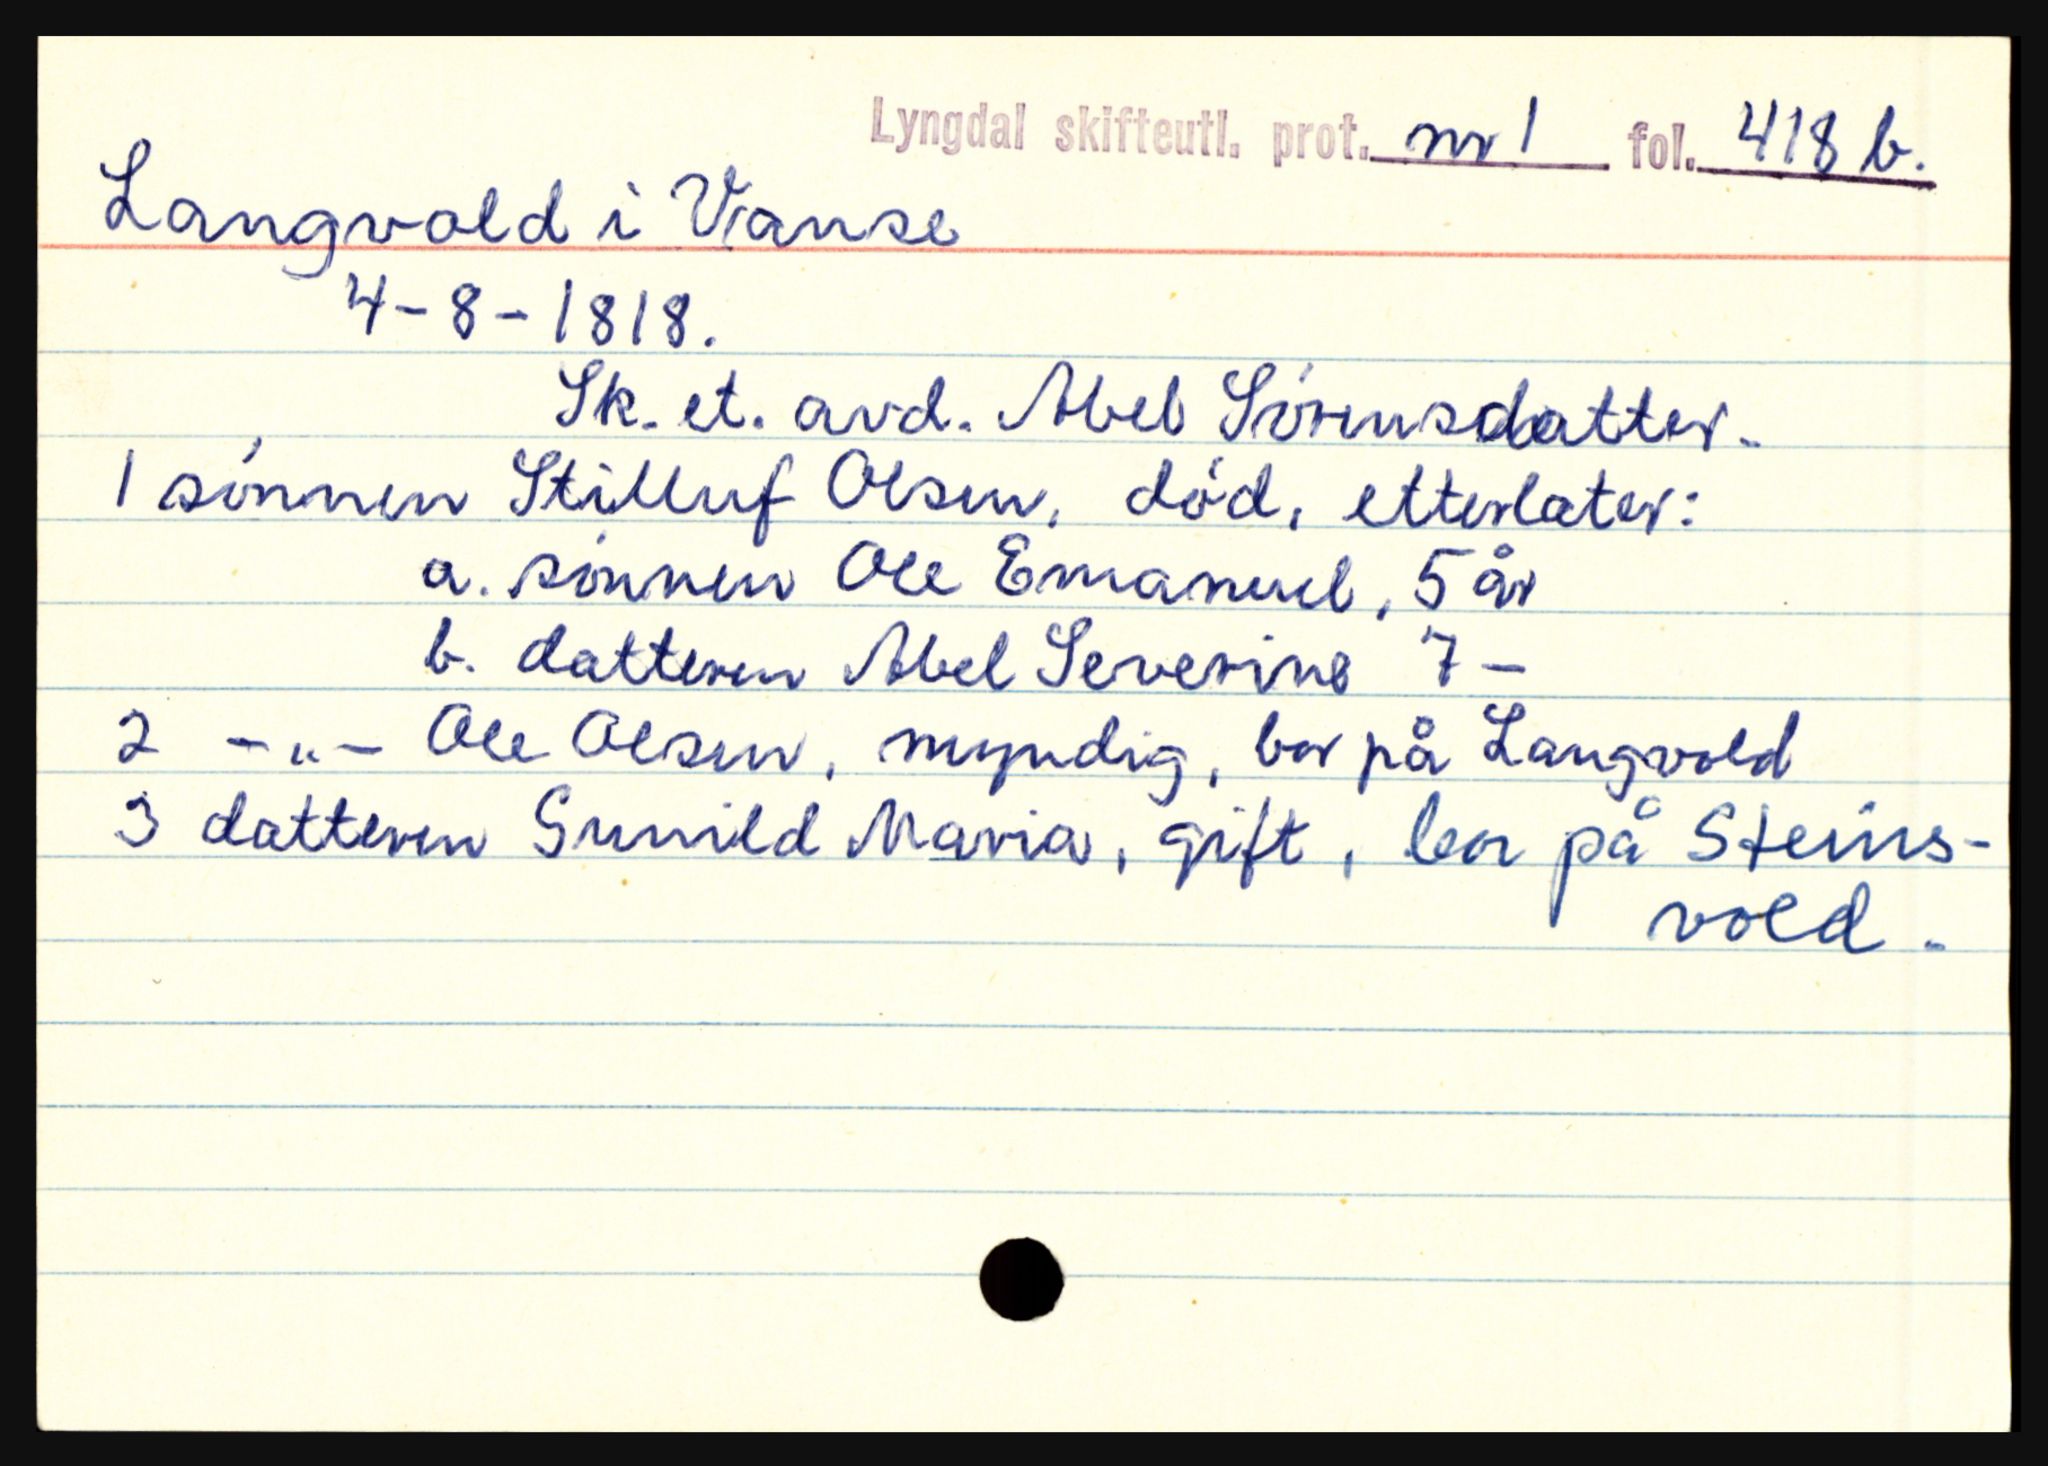 Lyngdal skifteutl. prot. nr 1 fol. 418 b.
Langvold i Vanse
4-8-1818.
Sk. et. avd. Abel Sørensdatter.
1 sønnen Stilluf Olsen, død, etterlater:
a. sønnen Ole Emanuel, 5 år
b. datteren Abel Severine 7 -
2 -"- Ole Olsen, myndig, bor på Langvold
3 datteren Gunild Maria, gift, bor på Steins-
vold.